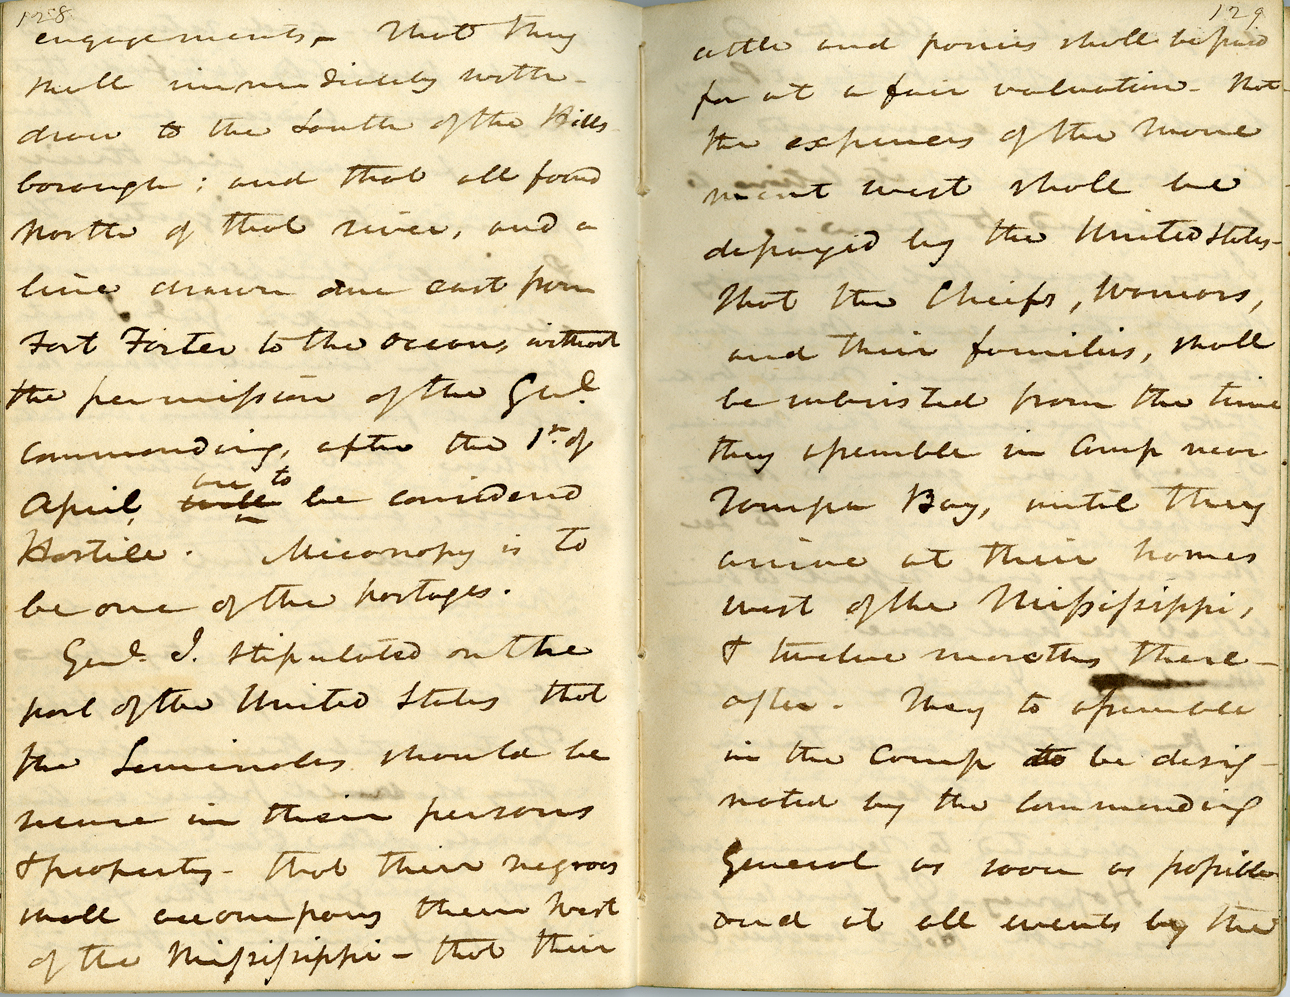 128
engagements, - That they
shall immediately with-
draw to the South of the Hills-
borough; and that all found
North of that river, and a
line drawn due east from
Fort Foster to the Ocean, without
the permission of the Genl.
Commanding, after the 1st of
April, will are to be considered
Hostile. Miconopy is to
be one of the hostages.
Genl. J. stipulated on the
part of the United States that
the Seminoles should be
secure in their persons
& property - that their negroes
shall accompany them West
of the Mississippi - that their
129
cattle and ponies shall be paid
for at a fair valuation - That
the expences of the move
ment west shall be
defrayed by the United States -
That the Chiefs, Warriors,
and their families, shall
be subsisted from the time
they assemble in Camp near
Tampa Bay, until they
arrive at their homes
west of the Mississippi,
& twelve months there-
after. They to assemble
in the Camp to be desig-
nated by the Commanding
General as soon as possible
and at all events by the